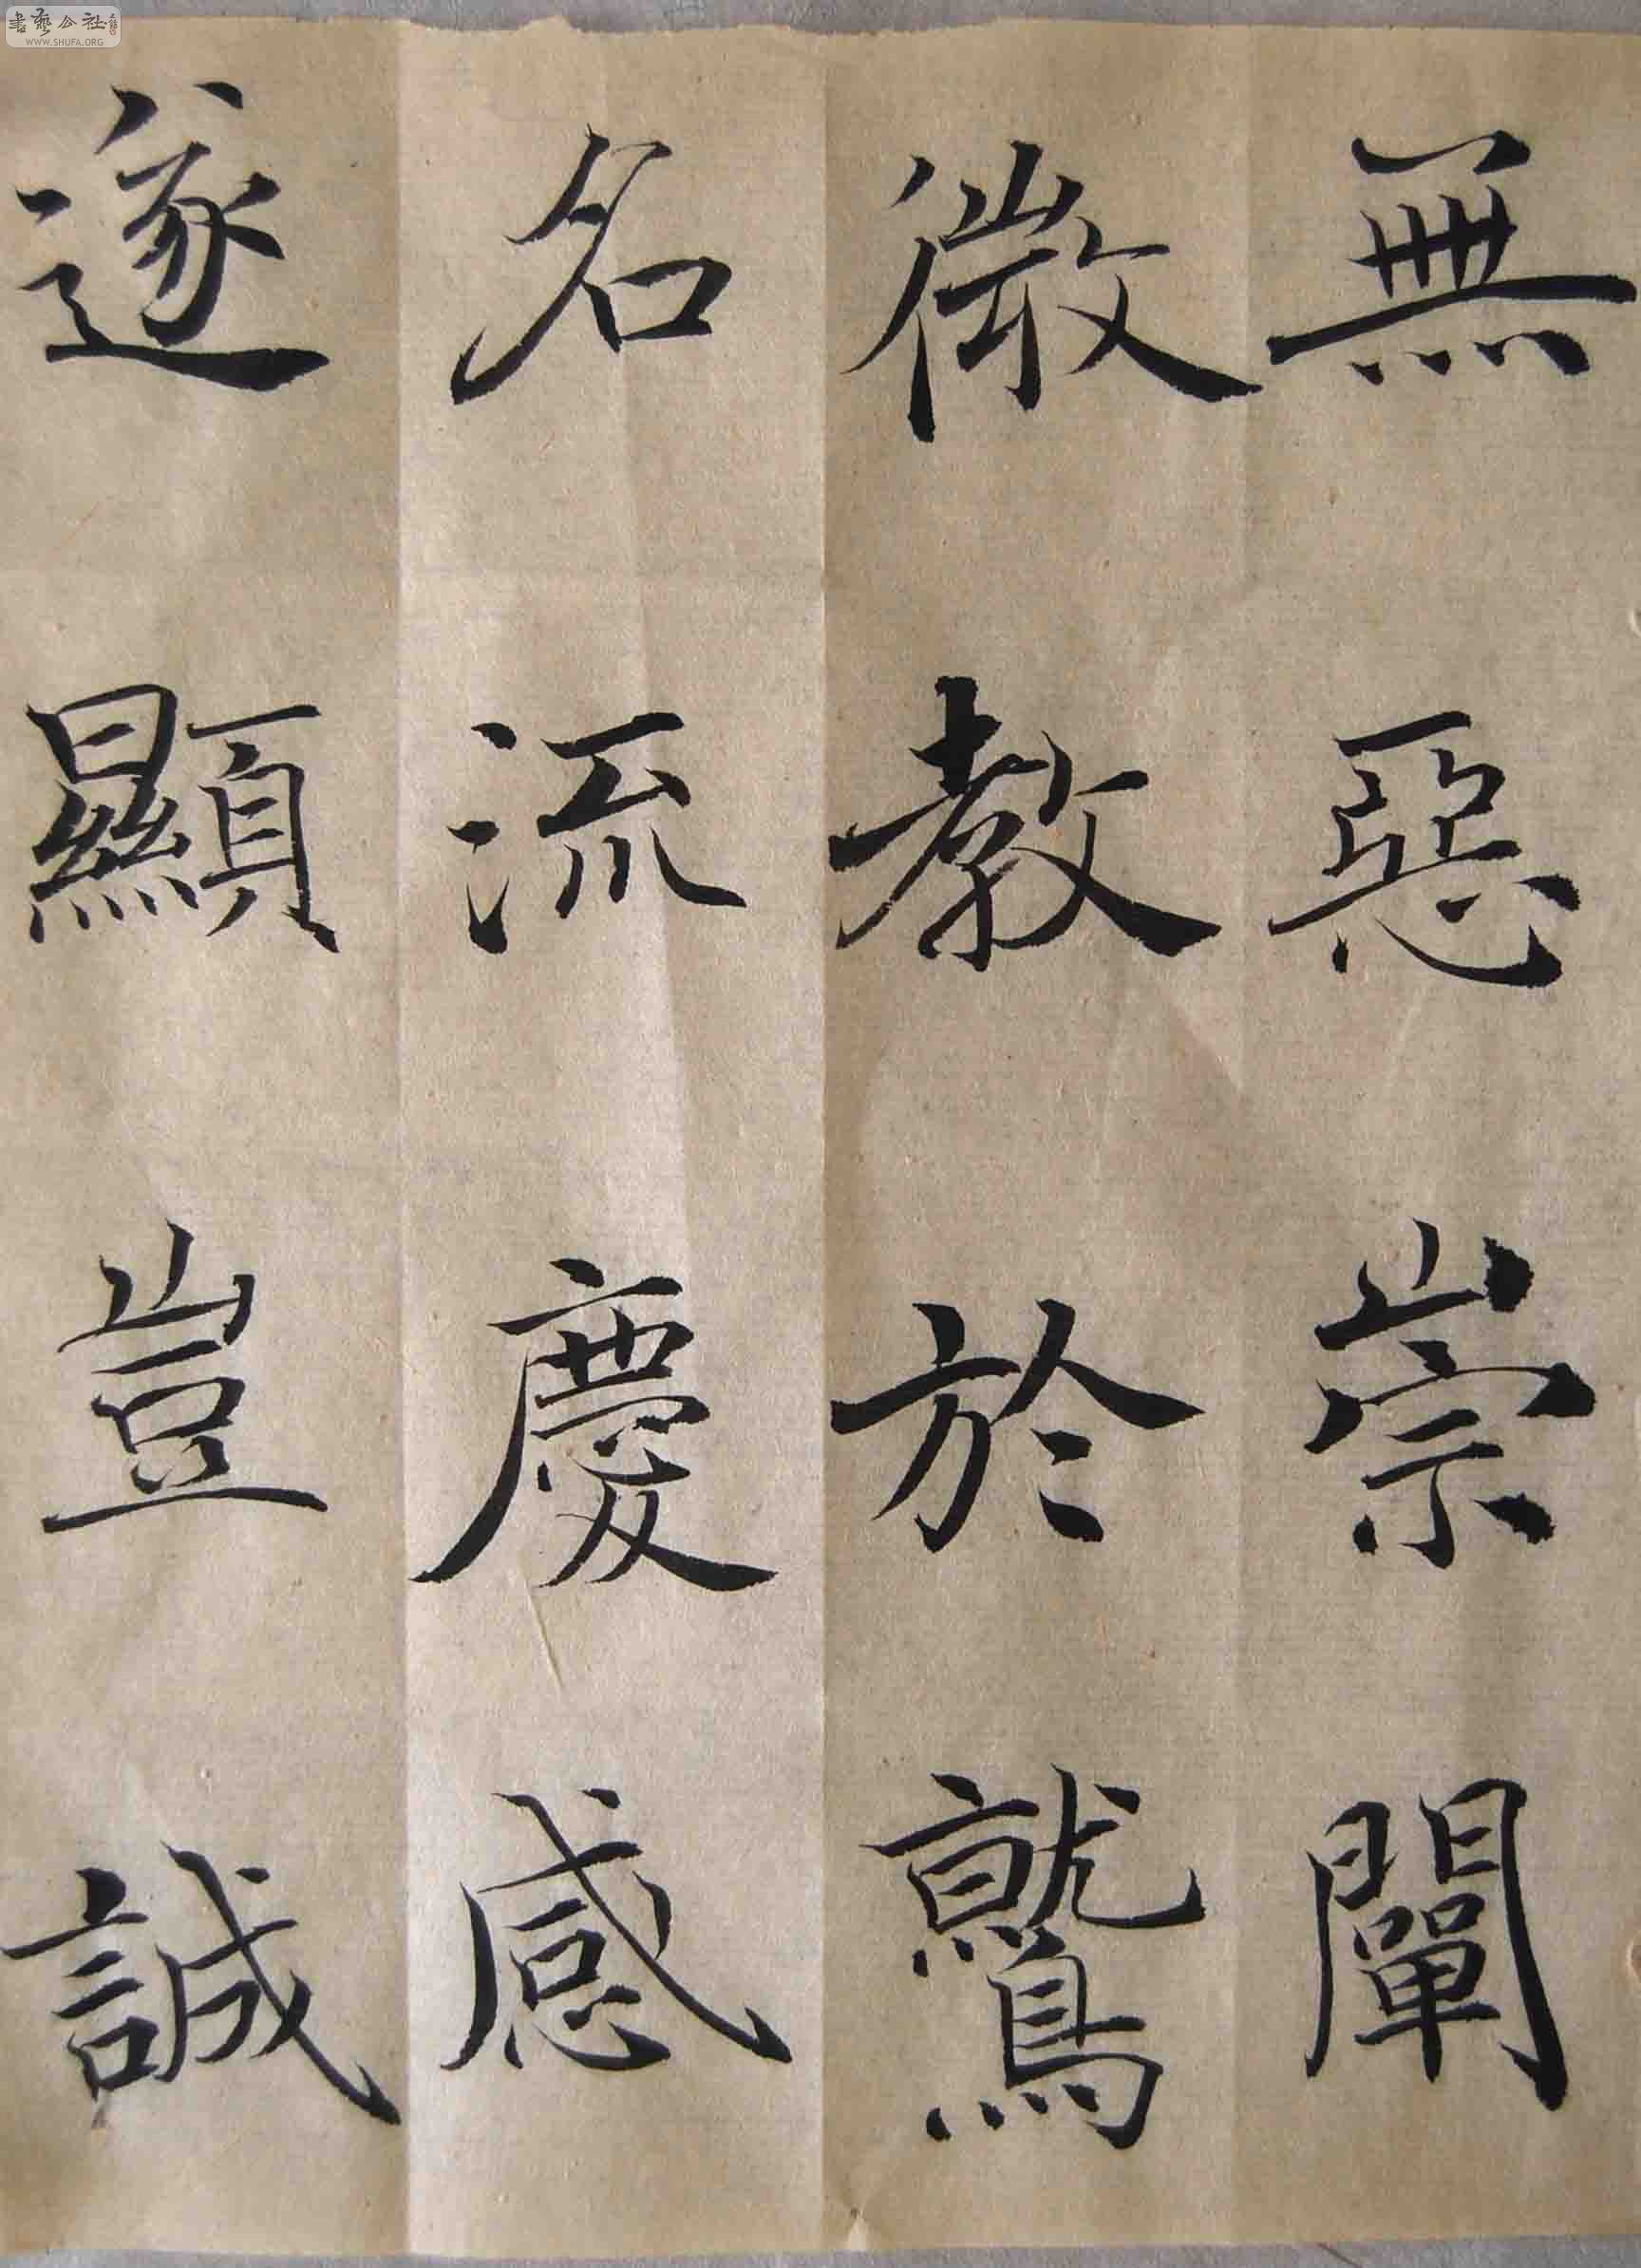 無惡崇闡
微教於鷲
名流慶感
遂顯豈誠
書藝公社
WWW.SHUFA.ORG